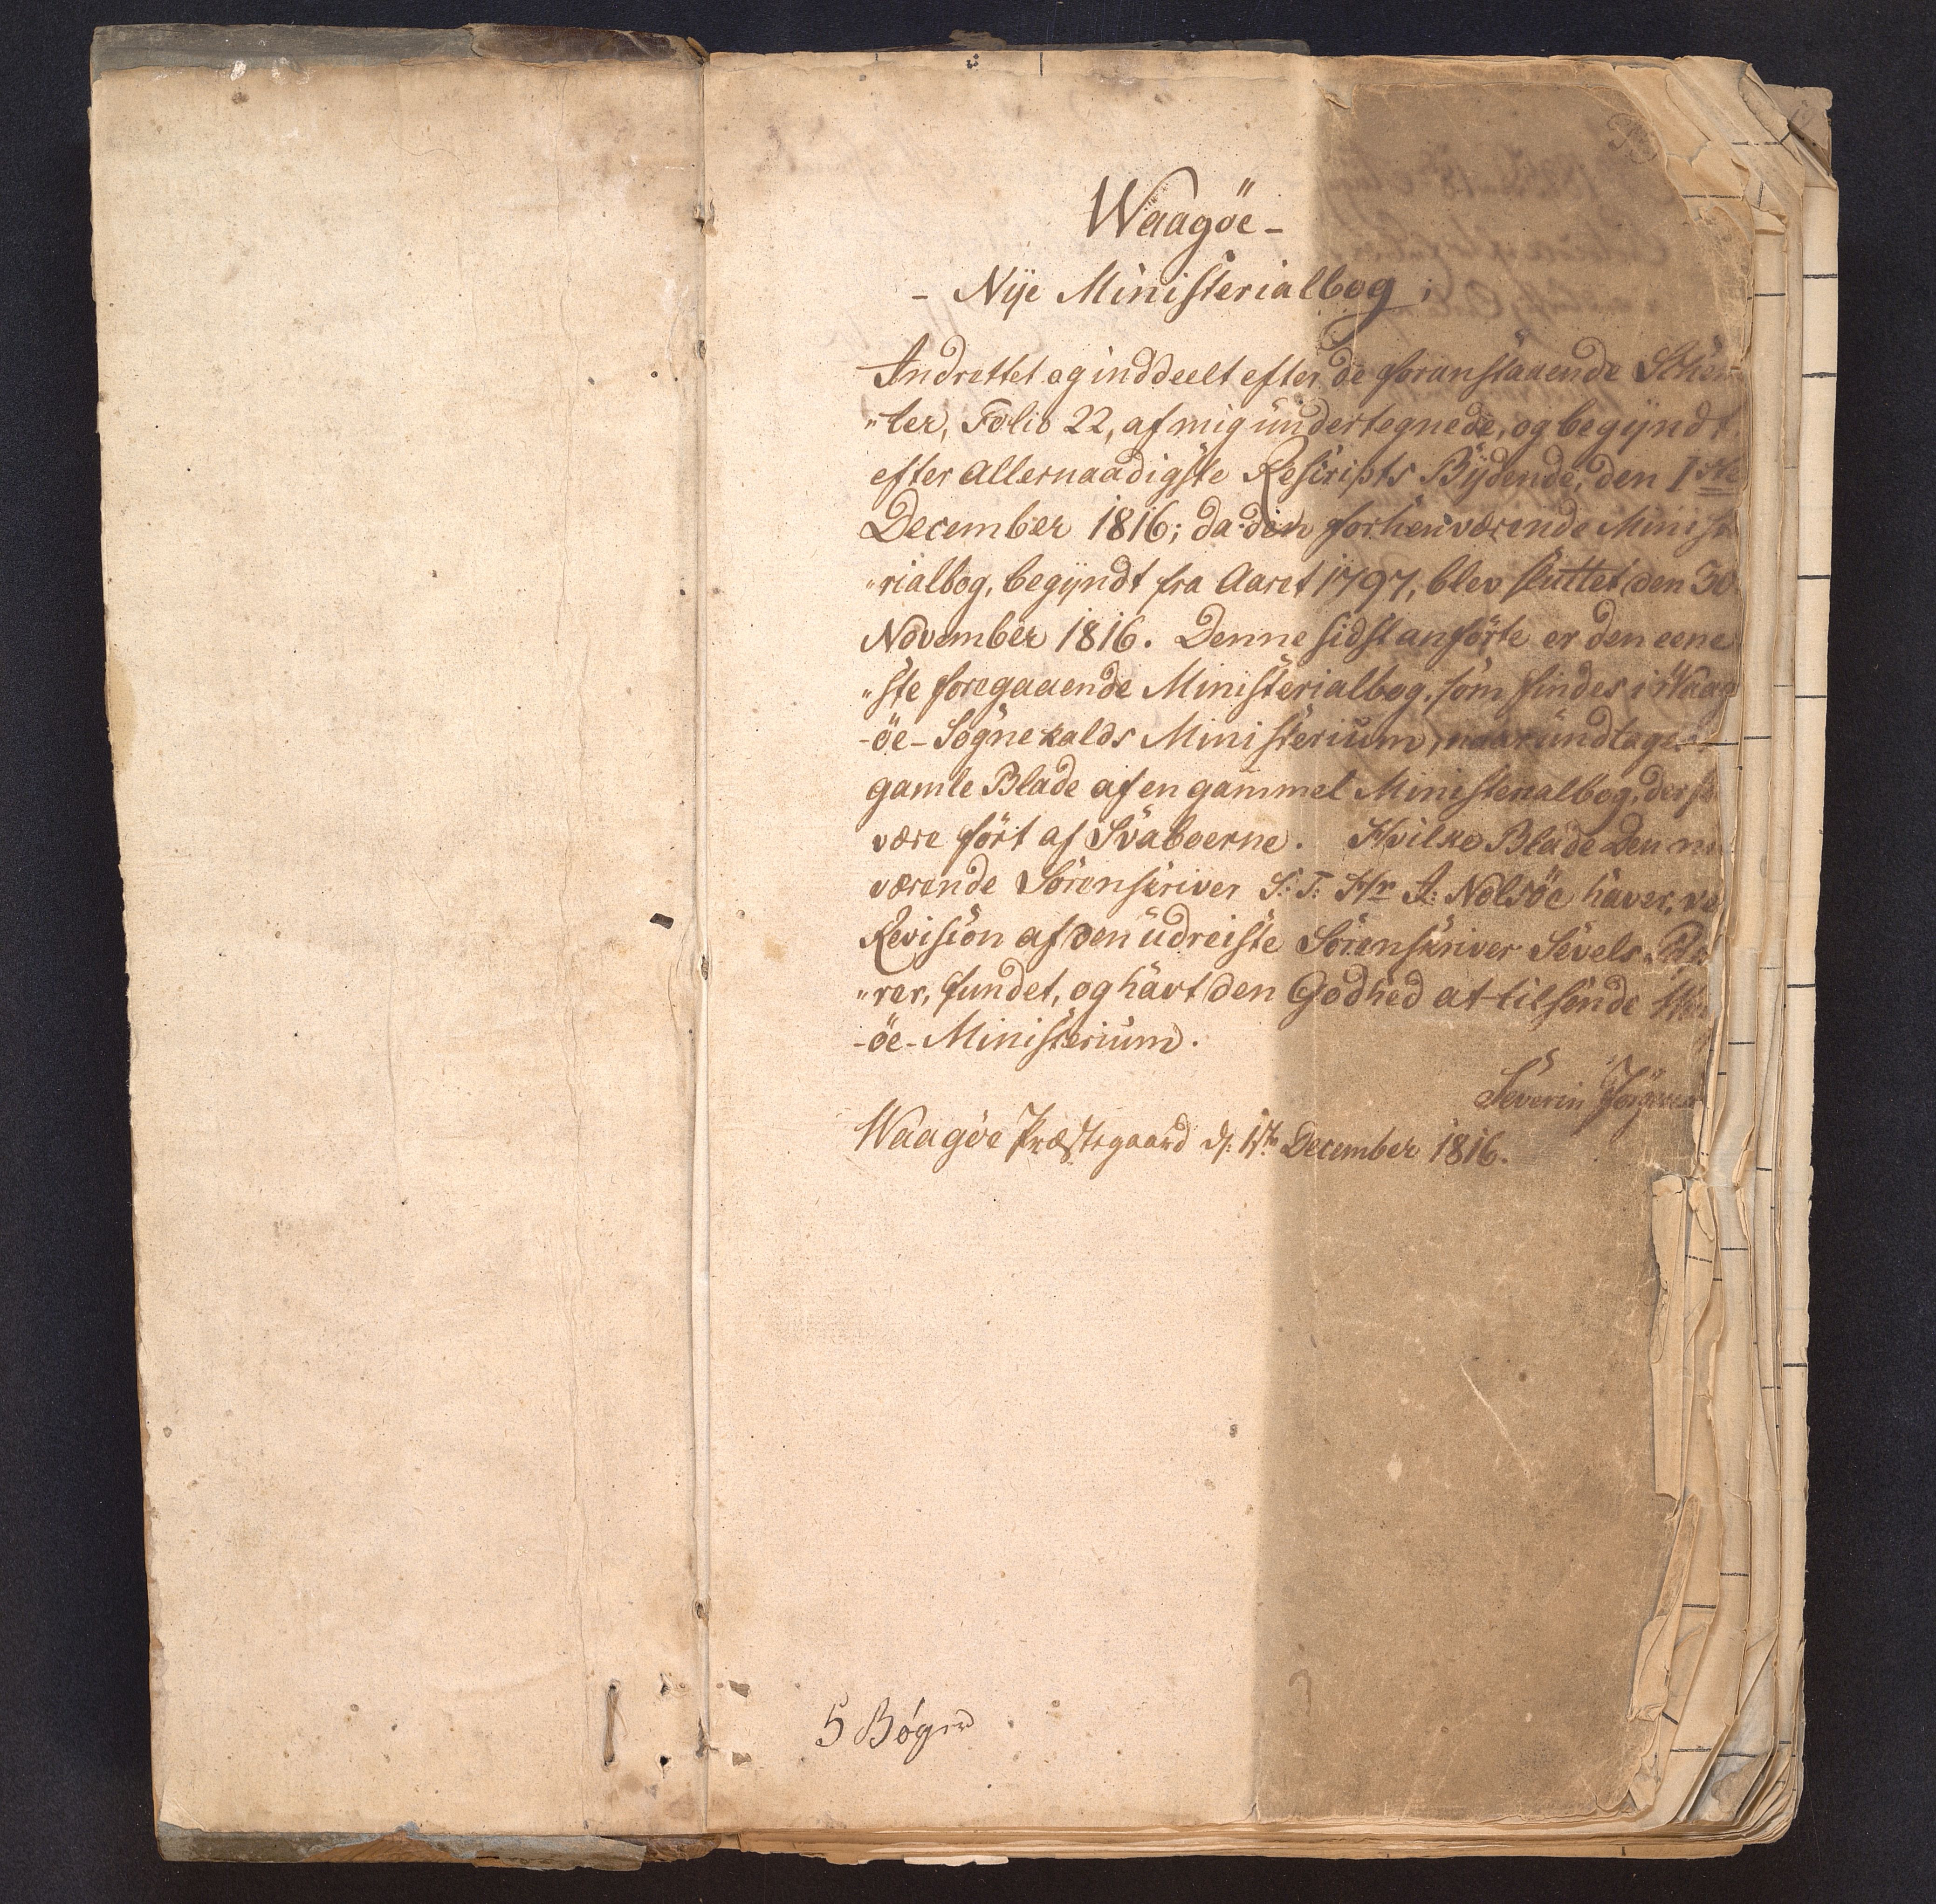 Waagöe-
- Nÿe Ministerialbog;
Indrettet og inddeelt efter de foranstaaende Schem-
"ter, Folio 22, af mig undertegnede, og begÿndt
efter Allernaadigste Rescripts Bÿdende, den 1ste
December 1816; da den forhenværende Minist
"rialbog, begÿndt fra Aaret 1797, blev sluttet den 30
November 1816. Denne sidst anförte er den eene
"ste foregaaende Ministerialbog, som findes i Waag
-öe-Sognekalds Ministerium, naar undtages
gamle Blade af en gammel Ministerialbog, der s
være fört af Svaboerne. Hvilke Blade Den n
værende Sorenskriver S: T: Hr J: Nolsöe haver, ve
Revision af den udreiste Sorenskriver Sevels P
"rer, fundet, og havt den Godhed at tilsende Wa
-öe-Ministerium.
Severin Jörgensen
Waagöe Præstegaard d: 1ste December 1816.
5 Bøger